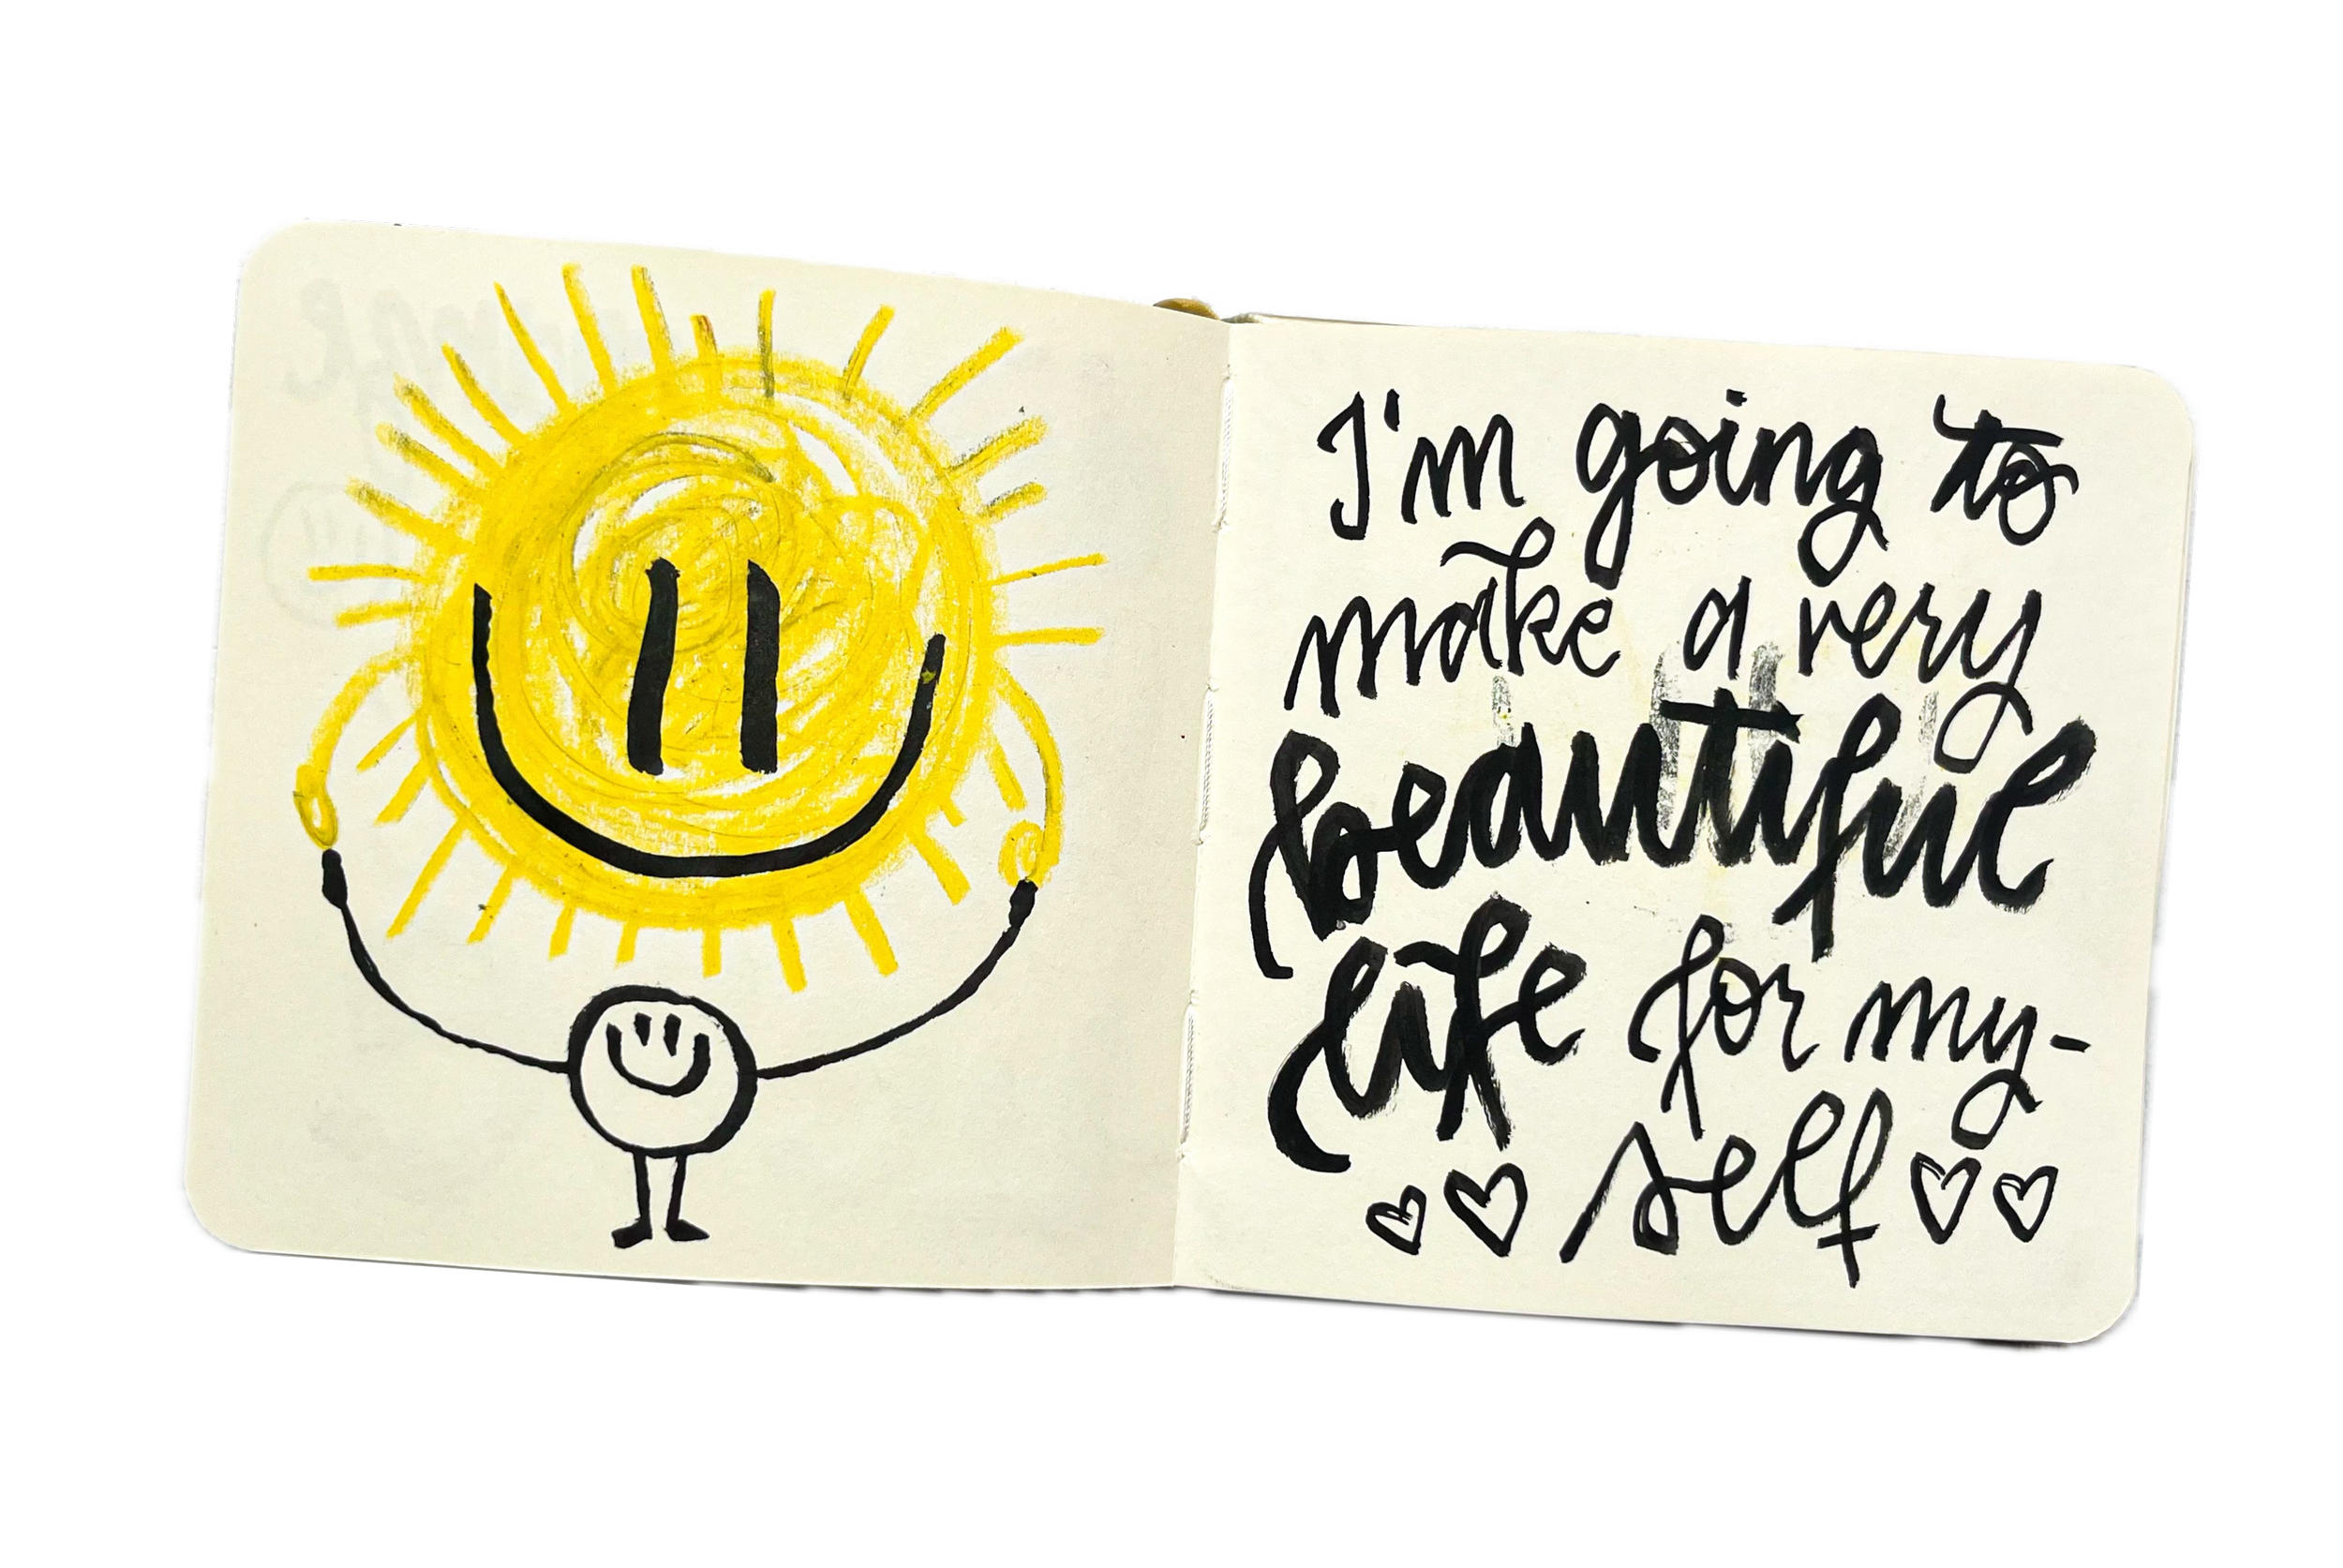 I'm going to
make a very
beautiful
life for my-
self